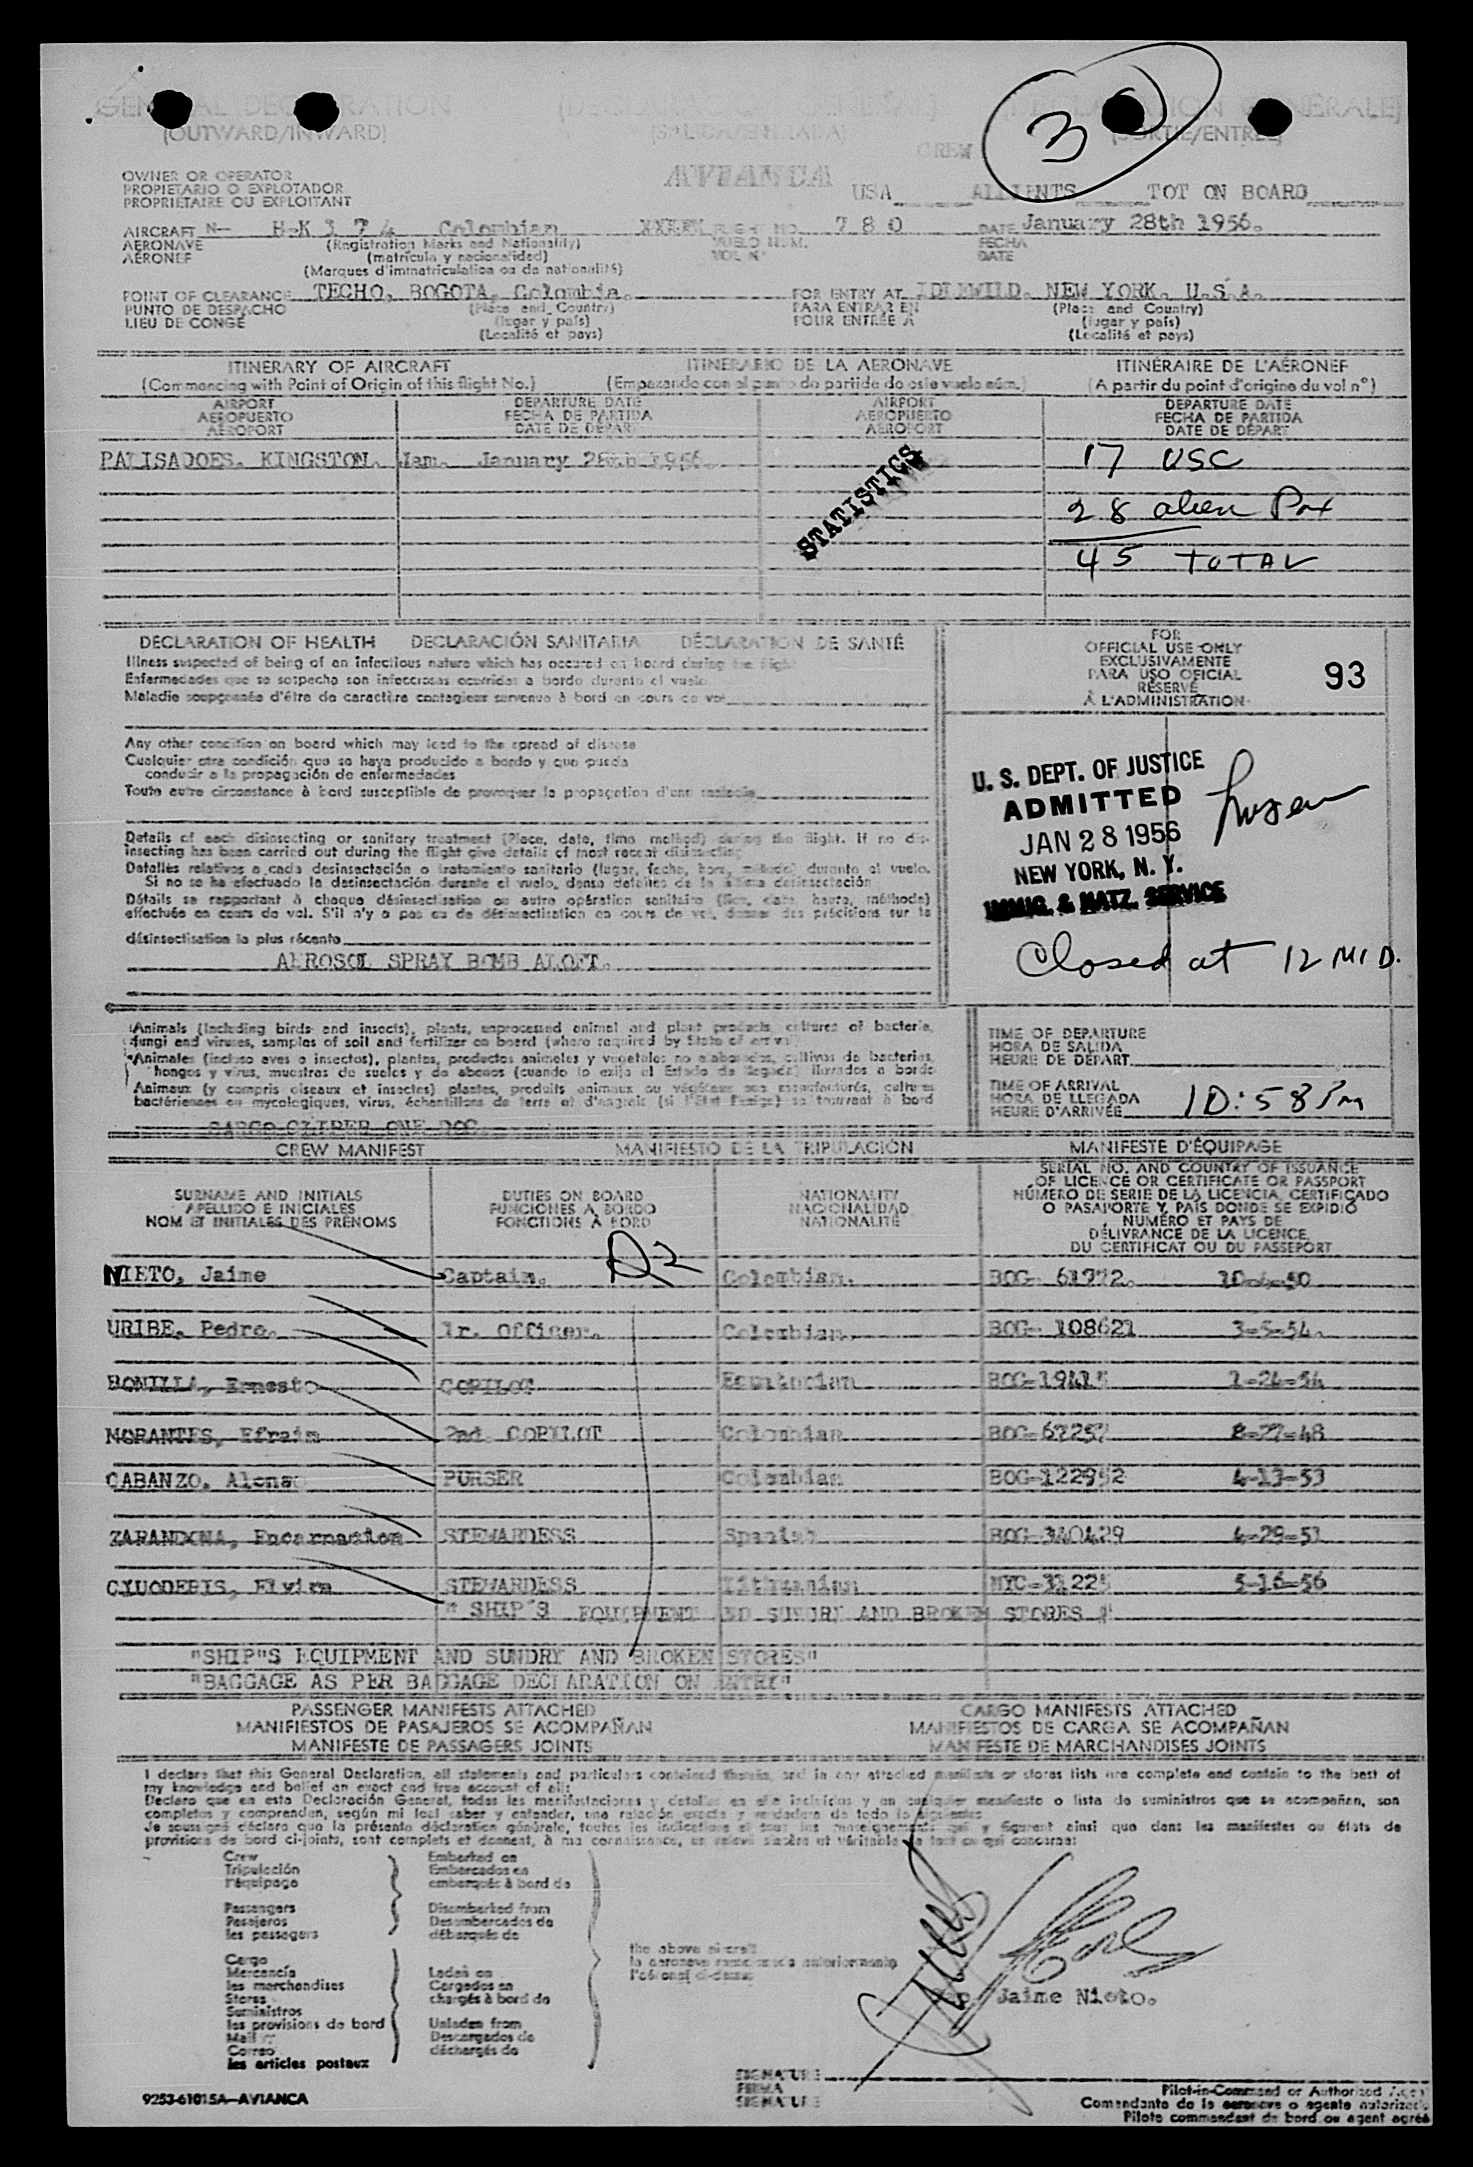 GENERAL DECLARATION
(OUTWARD/INWARD)
(SALIDA/ENTRADA)
(SORTIE/ENTRÉE)
3
CREW
OWNER OR OPERATOR
PROPIETARIO O EXPLOTADOR
PROPRIETAIRE OU EXPLOITANT
AVIANCA
USA ALLIENTS TOT ON BOARD
AIRCRAFT N- H-K 1 7 4 Colombian FLIGHT NO. 7 8 0 DATE January 28th 1956.
AERONAVE (Registration Marks and Nationality) VUELO NUM. FECHA
AÉRONEF (matricula y nacionalidad) VOL Nº DATE
(Marques d'immatriculation ou de nationalité)
POINT OF CLEARANCE TECHO, BOGOTA, Colombia. FOR ENTRY AT IDLEWILD, NEW YORK, U.S.A.
PUNTO DE DESPACHO (Place and Country) PARA ENTRAR EN (Place and Country)
LIEU DE CONGÉ (lugar y país) POUR ENTRÉE A (lugar y país)
(Localité et pays) (Localité et pays)
ITINERARY OF AIRCRAFT ITINERARIO DE LA AERONAVE ITINÉRAIRE DE L'AÉRONEF
(Commencing with Point of Origin of this flight No.) (Empezando con el punto de partida de este vuelo núm.) (A partir du point d'origine du vol nº)
AIRPORT DEPARTURE DATE AIRPORT DEPARTURE DATE
AEROPUERTO FECHA DE PARTIDA AEROPUERTO FECHA DE PARTIDA
AÉROPORT DATE DE DÉPART AÉROPORT DATE DE DÉPART
PALISADOES. KINGSTON. Jam. January 28th 1956. 17 USC
STATISTICS
28 alien Pax
45 TOTAL
DECLARATION OF HEALTH DECLARACIÓN SANITARIA DÉCLARATION DE SANTÉ
Illness suspected of being of an infectious nature which has occured on board during the flight
Enfermedades que se sospecha son infecciosas ocurridas a bordo durante el vuelo
Maladie soupçonnée d'être de caractère contagieux survenue à bord en cours de vol
FOR
OFFICIAL USE ONLY
EXCLUSIVAMENTE
PARA USO OFICIAL
RÉSERVÉ
À L'ADMINISTRATION
93
Any other condition on board which may lead to the spread of disease
Cualquier otra condición que se haya producido a bordo y que pueda
conducir a la propagación de enfermedades
Toute autre circonstance à bord susceptible de provoquer la propagation d'une maladie
U. S. DEPT. OF JUSTICE
ADMITTED
JAN 28 1956
NEW YORK, N. Y.
IMMIG. & NATZ. SERVICE
Details of each disinsecting or sanitary treatment (Place, date, time method) during the flight. If no dis-
insecting has been carried out during the flight give details of most recent disinsecting
Detalles relativos a cada desinsectación o tratamiento sanitario (lugar, fecha, hora, método) durante el vuelo.
Si no se ha efectuado la desinsectación durante el vuelo, dense detalles de la última desinsectación
Détails se rapportant à chaque désinsectisation ou autre opération sanitaire (lieu, date, heure, méthode)
effectuée en cours de vol. S'il n'y a pas eu de désinsectisation en cours de vol, donner des précisions sur la
désinsectisation la plus récente
AEROSOL SPRAY BOMB ALOFT.
Closed at 12 MID.
Animals (including birds and insects), plants, unprocessed animal and plant products, cultures of bacteria,
fungi and viruses, samples of soil and fertilizer on board (where required by State of arrival)
Animales (incluso aves e insectos), plantas, productos animales y vegetales no elaborados, cultivos de bacterias,
hongos y virus, muestras de suelos y de abonos (cuando lo exija el Estado de llegada) llevados a bordo
Animaux (y compris oiseaux et insectes) plantes, produits animaux ou végétaux non manufacturés, cultures
bactériennes ou mycologiques, virus, échantillons de terre et d'engrais (si l'État l'exige) se trouvant à bord
CARGO CLIPER ONE DOG.
TIME OF DEPARTURE
HORA DE SALIDA
HEURE DE DÉPART
TIME OF ARRIVAL
HORA DE LLEGADA
HEURE D'ARRIVÉE 10:58 Pm
CREW MANIFEST MANIFIESTO DE LA TRIPULACIÓN MANIFESTE D'ÉQUIPAGE
SURNAME AND INITIALS
APELLIDO E INICIALES
NOM ET INITIALES DES PRÉNOMS
DUTIES ON BOARD
FUNCIONES A BORDO
FONCTIONS À BORD
NATIONALITY
NACIONALIDAD
NATIONALITÉ
SERIAL NO. AND COUNTRY OF ISSUANCE
OF LICENCE OR CERTIFICATE OR PASSPORT
NÚMERO DE SERIE DE LA LICENCIA, CERTIFICADO
O PASAPORTE Y PAÍS DONDE SE EXPIDIÓ
NUMÉRO ET PAYS DE
DÉLIVRANCE DE LA LICENCE,
DU CERTIFICAT OU DU PASSEPORT
D2
NIETO, Jaime Captain. Colombian. BOG- 61972.
URIBE, Pedro. 1r. Officer. Colombian. BOG- 108621 3-5-54.
BONILLA, Ernesto COPILOT Equatorian BOG-19415 1-24-54
MORANTES, Efrain 2nd COPILOT Colombian BOG-67257 8-27-48
CABANZO, Alonso PURSER Colombian BOG-122952 4-13-53
ZARANDONA, Encarnacion STEWARDESS Spanish BOG-340429 4-29-53
CYUODERIS, Elvira STEWARDESS Lithuanian NYC-31225 5-16-56
" SHIP'S EQUIPMENT AND SUNDRY AND BROKEN STORES "
"SHIP"S EQUIPMENT AND SUNDRY AND BROKEN STORES"
"BAGGAGE AS PER BAGGAGE DECLARATION ON ENTRY"
PASSENGER MANIFESTS ATTACHED CARGO MANIFESTS ATTACHED
MANIFIESTOS DE PASAJEROS SE ACOMPAÑAN MANIFIESTOS DE CARGA SE ACOMPAÑAN
MANIFESTE DE PASSAGERS JOINTS MANIFESTE DE MARCHANDISES JOINTS
I declare that this General Declaration, all statements and particulars contained therein, and in any attached manifests or stores lists are complete and contain to the best of
my knowledge and belief an exact and true account of all:
Declaro que en esta Declaración General, todas las manifestaciones y detalles en ella incluidos y en cualquier manifiesto o lista de suministros que se acompañen, son
completos y comprenden, según mi leal saber y entender, una relación exacta y verdadera de todo lo siguiente
Je soussigné déclare que la présente déclaration générale, toutes les indications et tous les renseignements qui y figurent ainsi que dans les manifestes ou états de
provisions de bord ci-joints, sont complets et donnent, à ma connaissance, un relevé sincère et véritable de tout ce qui concerne:
Crew Embarked on
Tripulación Embarcados en
l'équipage embarqués à bord de
Passengers Disembarked from
Pasajeros Desembarcados de
les passagers débarqués de
the above aircraft
la aeronave mencionada anteriormente
l'aéronef ci-dessus
Cargo
Mercancía Laden on
les marchandises Cargados en
Stores chargés à bord de
Suministros
les provisions de bord Unladen from
Mail Descargados de
Correo déchargés de
les articles postaux
Cap. Jaime Nieto.
SIGNATURE
FIRMA
SIGNATURE
Pilot-in-Command or Authorized Agent
Comandante de la aeronave o agente autorizado
Pilote commandant de bord ou agent agréé
9253-61015A—AVIANCA